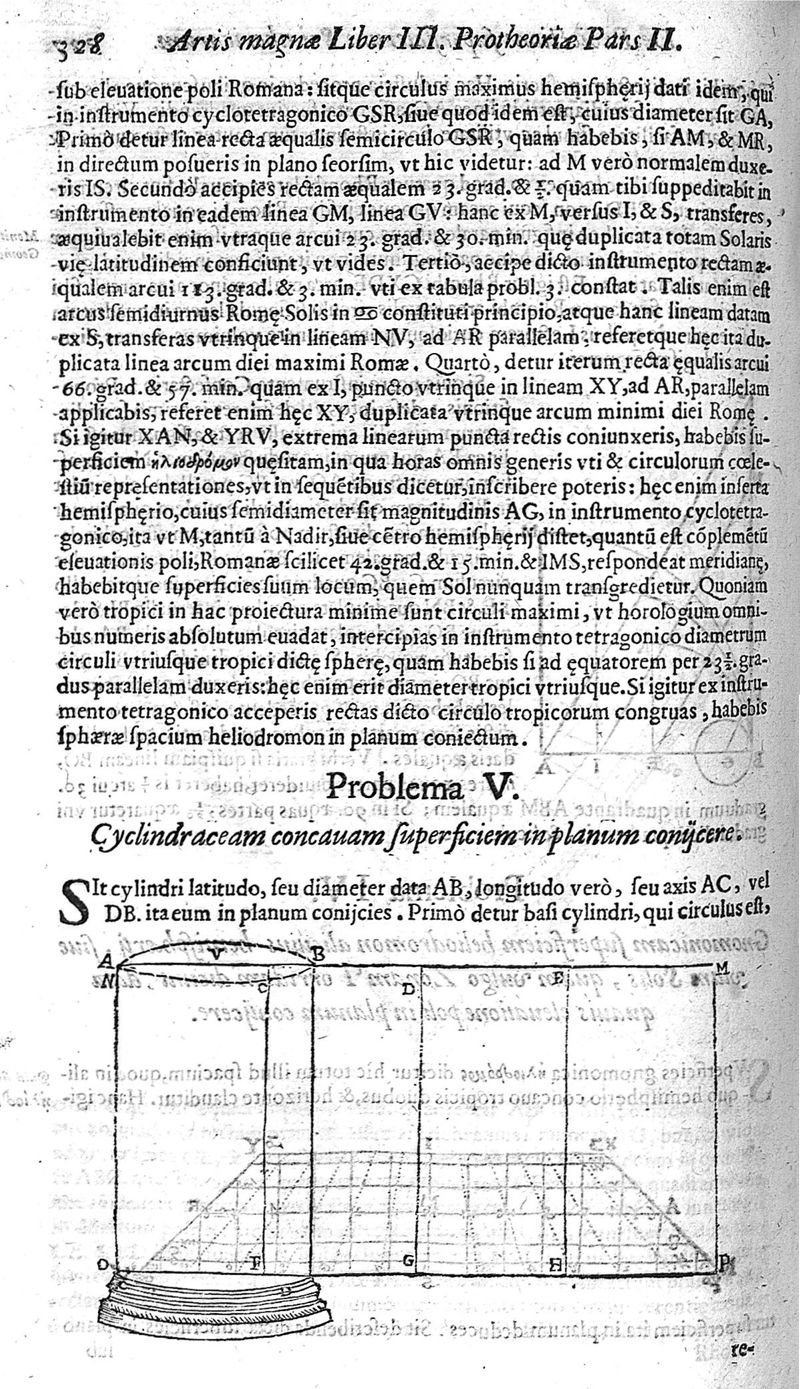 328 Artis magnæ Liber III. Protheoriæ Pars II.
sub eleuatione poli Romana: sitque circulus maximus hemisphęrij dati idem, qui
in instrumento cyclotetragonico GSR, siue quod idem est, cuius diameter sit GA,
Primò detur linea recta æqualis semicirculo GSR, quam habebis, si AM, & MR,
in directum posueris in plano seorsim, vt hic videtur: ad M verò normalem duxe-
ris IS. Secundò accipies rectam æqualem 23. grad. & ½. quam tibi suppeditabit in
instrumento in eadem linea GM, linea GV: hanc ex M, versus I, & S, transferes,
æquiualebit enim vtraque arcui 23. grad. & 30. min. quę duplicata totam Solaris
vię latitudinem conficiunt, vt vides. Tertiò, accipe dicto instrumento rectam æ-
qualem arcui 113. grad. & 3. min. vti ex tabula probl. 3. constat. Talis enim est
arcus semidiurnus Romę Solis in ♋ constituti principio, atque hanc lineam datam
ex S, transferas vtrinque in lineam NV, ad AR parallelam, referetque hęc ita du-
plicata linea arcum diei maximi Romæ. Quartò, detur iterum recta ęqualis arcui
66. grad. & 57. min. quam ex I, puncto vtrinque in lineam XY, ad AR, parallelam
applicabis, referet enim hęc XY, duplicata vtrinque arcum minimi diei Romę.
Si igitur XAN, & YRV, extrema linearum puncta rectis coniunxeris, habebis su-
perficiem ἡλιοδρόμον quęsitam, in qua horas omnis generis vti & circulorum cœle-
stiũ repręsentationes, vt in sequẽtibus dicetur, inscribere poteris: hęc enim inserta
hemisphęrio, cuius semidiameter sit magnitudinis AG, in instrumento cyclotetra-
gonico, ita vt M, tantũ à Nadir, siue cẽtro hemisphęrij distet, quantũ est cõplemẽtũ
eleuationis poli, Romanæ scilicet 42. grad. & 15. min. & IMS, respondeat meridianę,
habebitque superficies suum locum, quem Sol nunquam transgredietur. Quoniam
verò tropici in hac proiectura minime sunt circuli maximi, vt horologium omni-
bus numeris absolutum euadat, intercipias in instrumento tetragonico diametrum
circuli vtriusque tropici dictę spherę, quam habebis si ad ęquatorem per 23½. gra-
dus parallelam duxeris: hęc enim erit diameter tropici vtriusque. Si igitur ex instru-
mento tetragonico acceperis rectas dicto circulo tropicorum congruas, habebis
sphæræ spacium heliodromon in planum coniectum.
Problema V.
Cyclindraceam concauam superficiem in planum conijcere.
SIt cylindri latitudo, seu diameter data AB, longitudo verò, seu axis AC, vel
DB. ita eum in planum conijcies. Primò detur basi cylindri, qui circulus est,
A V B M
N C D E
O F G H P
C D
re-